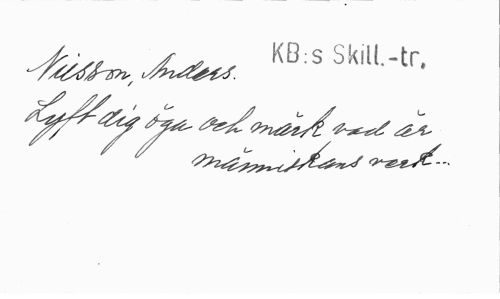 Nilsson, Anders.
KB:s Skill.-tr.
Lyft dig öga och märk, vad är
människans verk...